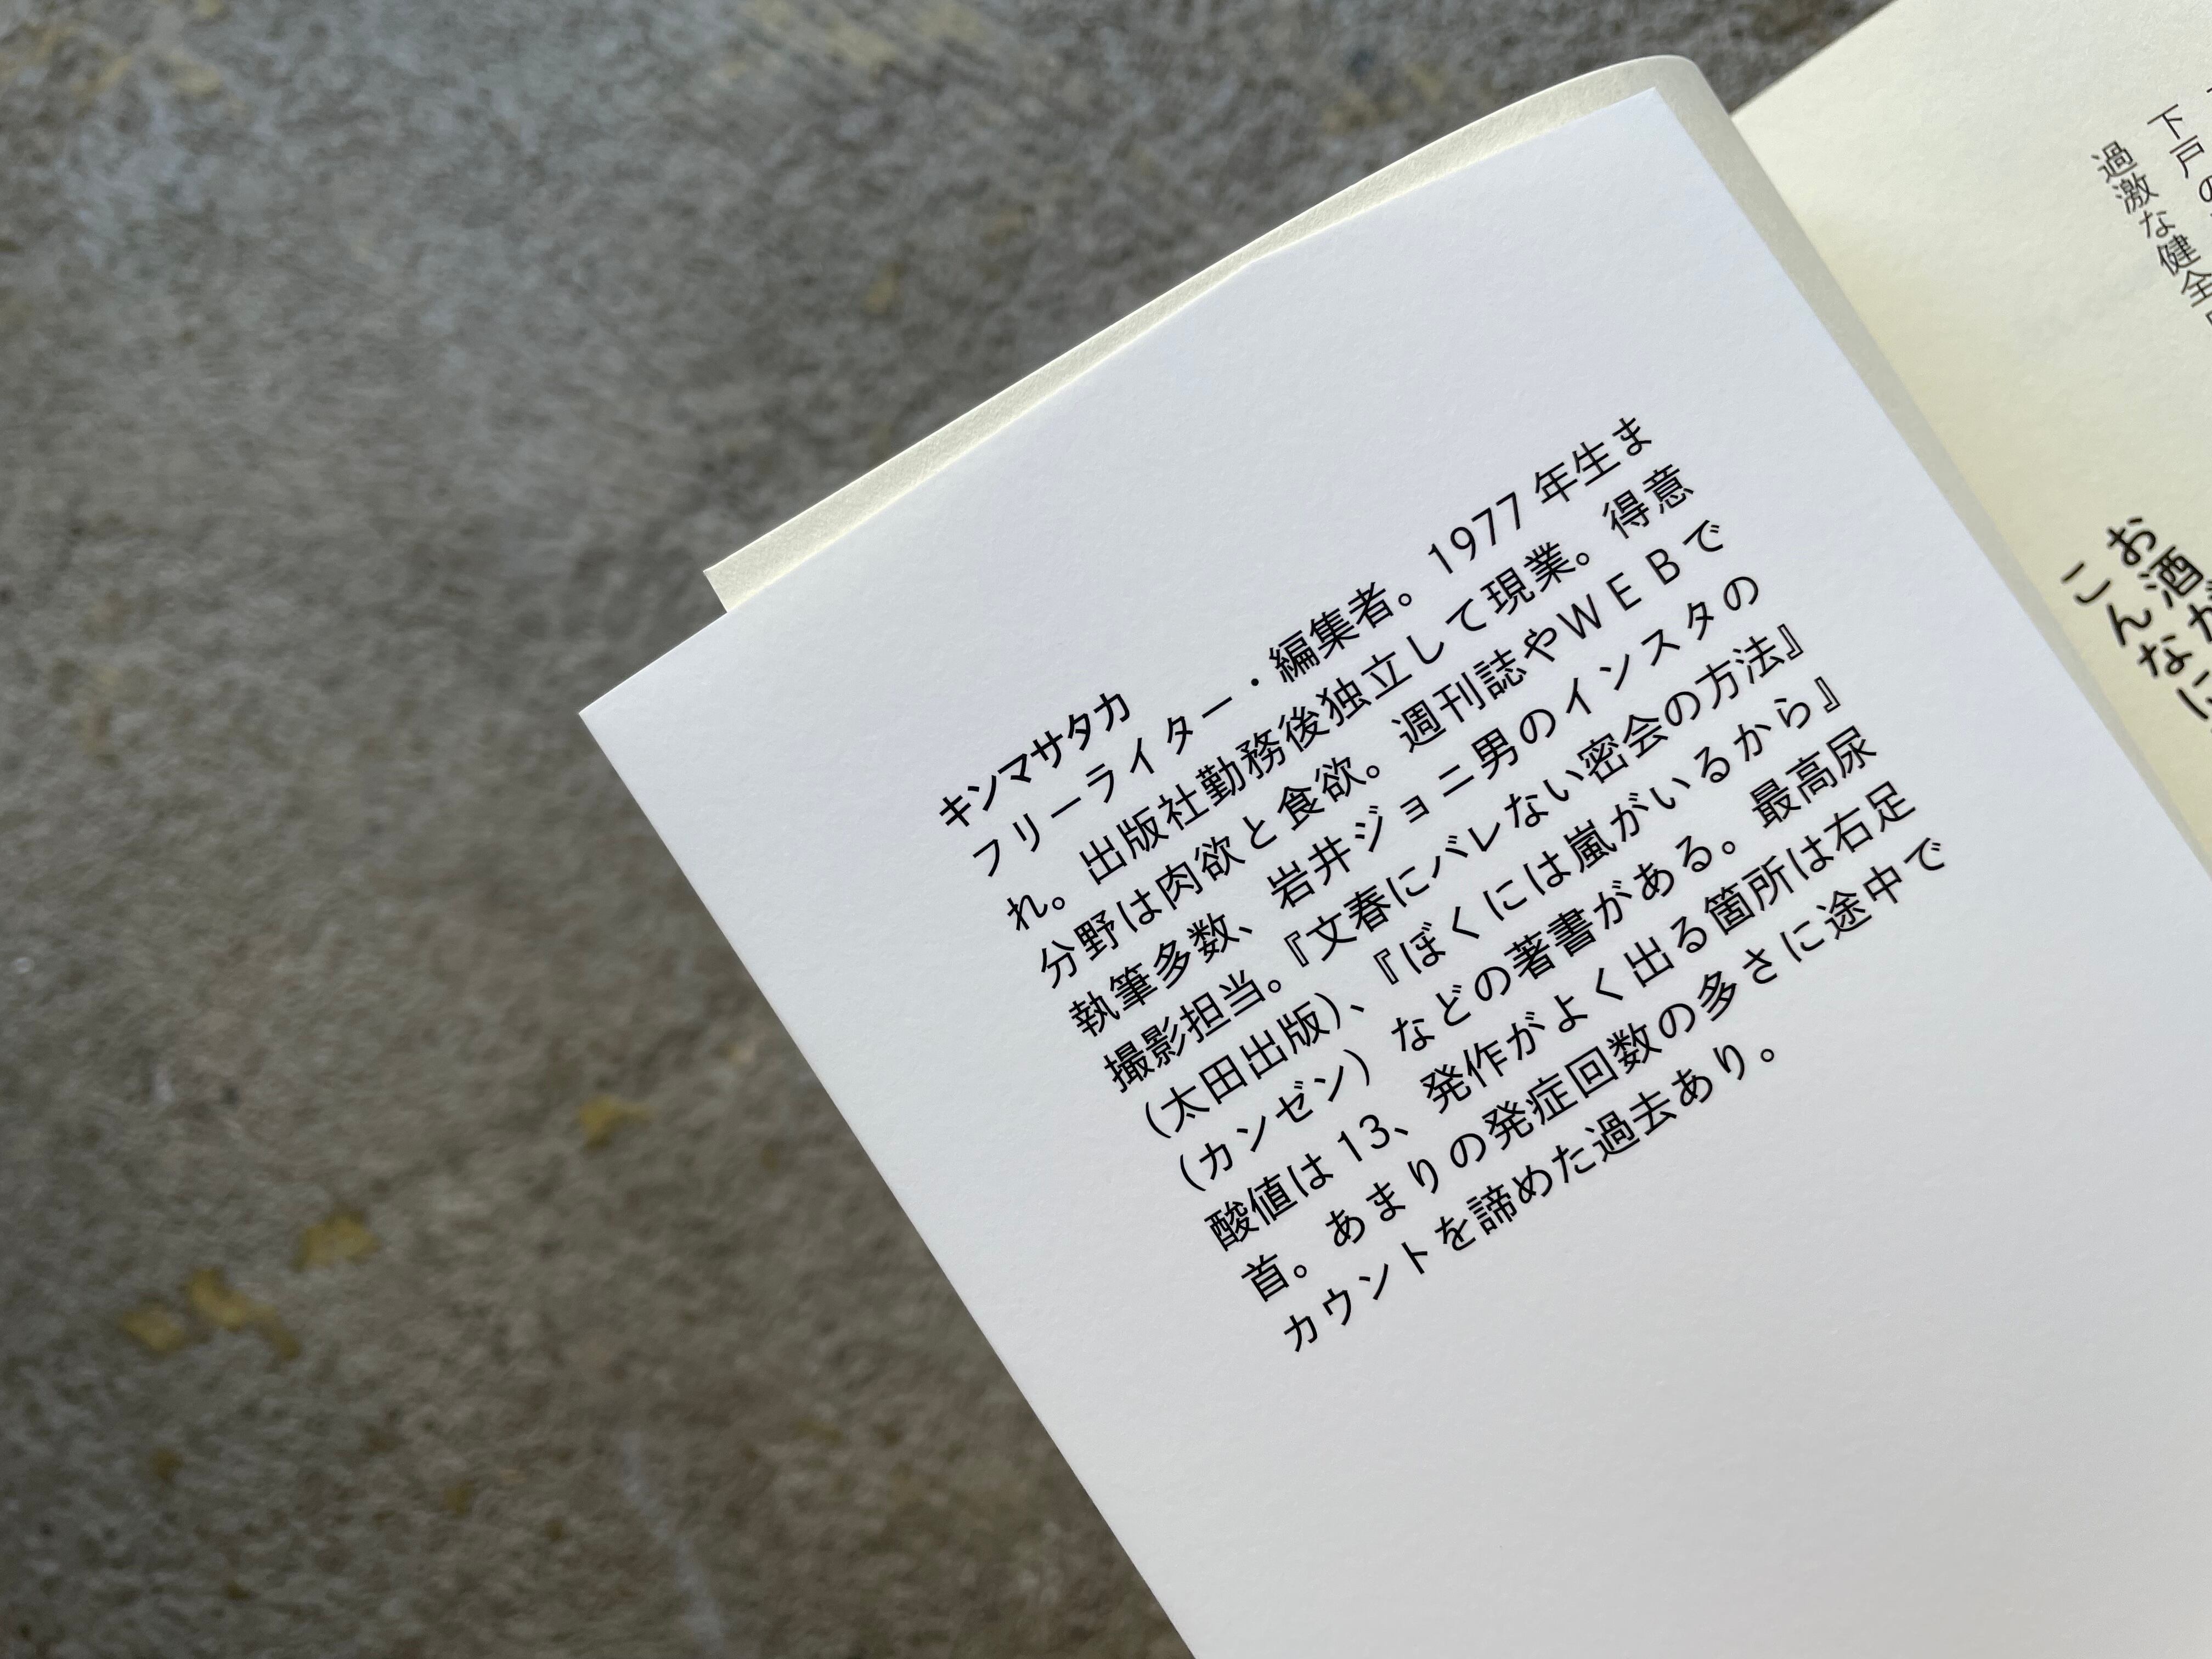 キンマサタカ
フリーライター・編集者。1977 年生ま
れ。出版社勤務後独立して現業。得意
分野は肉欲と食欲。週刊誌やＷＥＢで
執筆多数、岩井ジョニ男のインスタの
撮影担当。『文春にバレない密会の方法』
（太田出版）、『ぼくには嵐がいるから』
（カンゼン）などの著書がある。最高尿
酸値は 13、発作がよく出る箇所は右足
首。あまりの発症回数の多さに途中で
カウントを諦めた過去あり。
下戸の
過激な健全
お酒が
こんなに